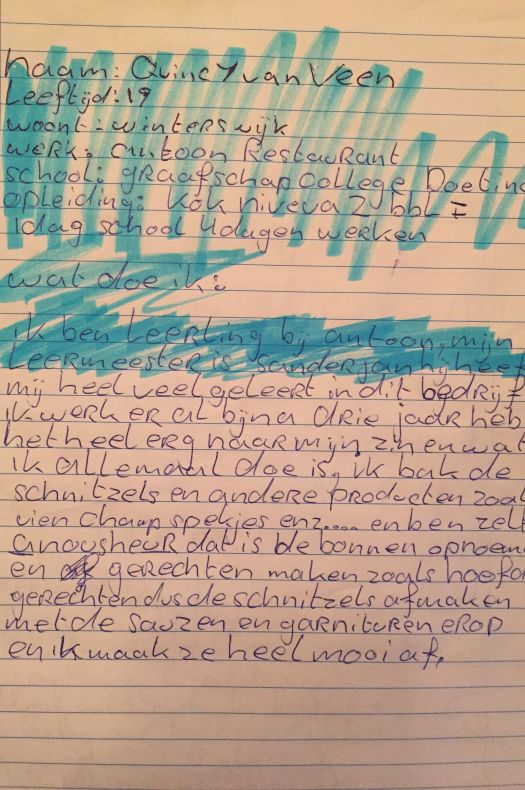 naam: Quincy van Veen
Leeftijd: 19
woont: winterswijk
werk: antoon Restaurant
school: graafschap College Doetin
opleiding: kok niveva 2 bbl =
1dag school 4dagen werken
wat doe ik:
ik ben Leerling bij antoon, mijn
Leermeester is sanderjan hij heef
mij heel veel geleert in dit bedrijf
ik werk er al bijna drie jaar heb
het heel erg naar mijn zin en wat
ik allemaal doe is, ik bak de
schnitzels en andere producten zoal
vien champ spekjes enz.... en ben zelf
anousheur dat is de bonnen opnoem
en gerechten maken zoals hoofd
gerechten dus de schnitzels afmaken
met de sauzen en garnituren erop
en ik maak ze heel mooi af.